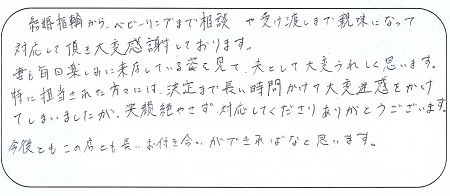 結婚指輪から、ベビーリングまで相談 や受け渡しまで親味になって
対応して頂き大変感謝しております。
妻も毎回楽しみに来店している姿を見て、夫として大変うれしく思います。
特に担当された方々には、決定まで長い時間かけて大変迷惑をかけ
てしまいましたが、笑顔絶やさず対応してくださりありがとうございます。
今後ともこの店とも長いお付き合いができればなと思います。